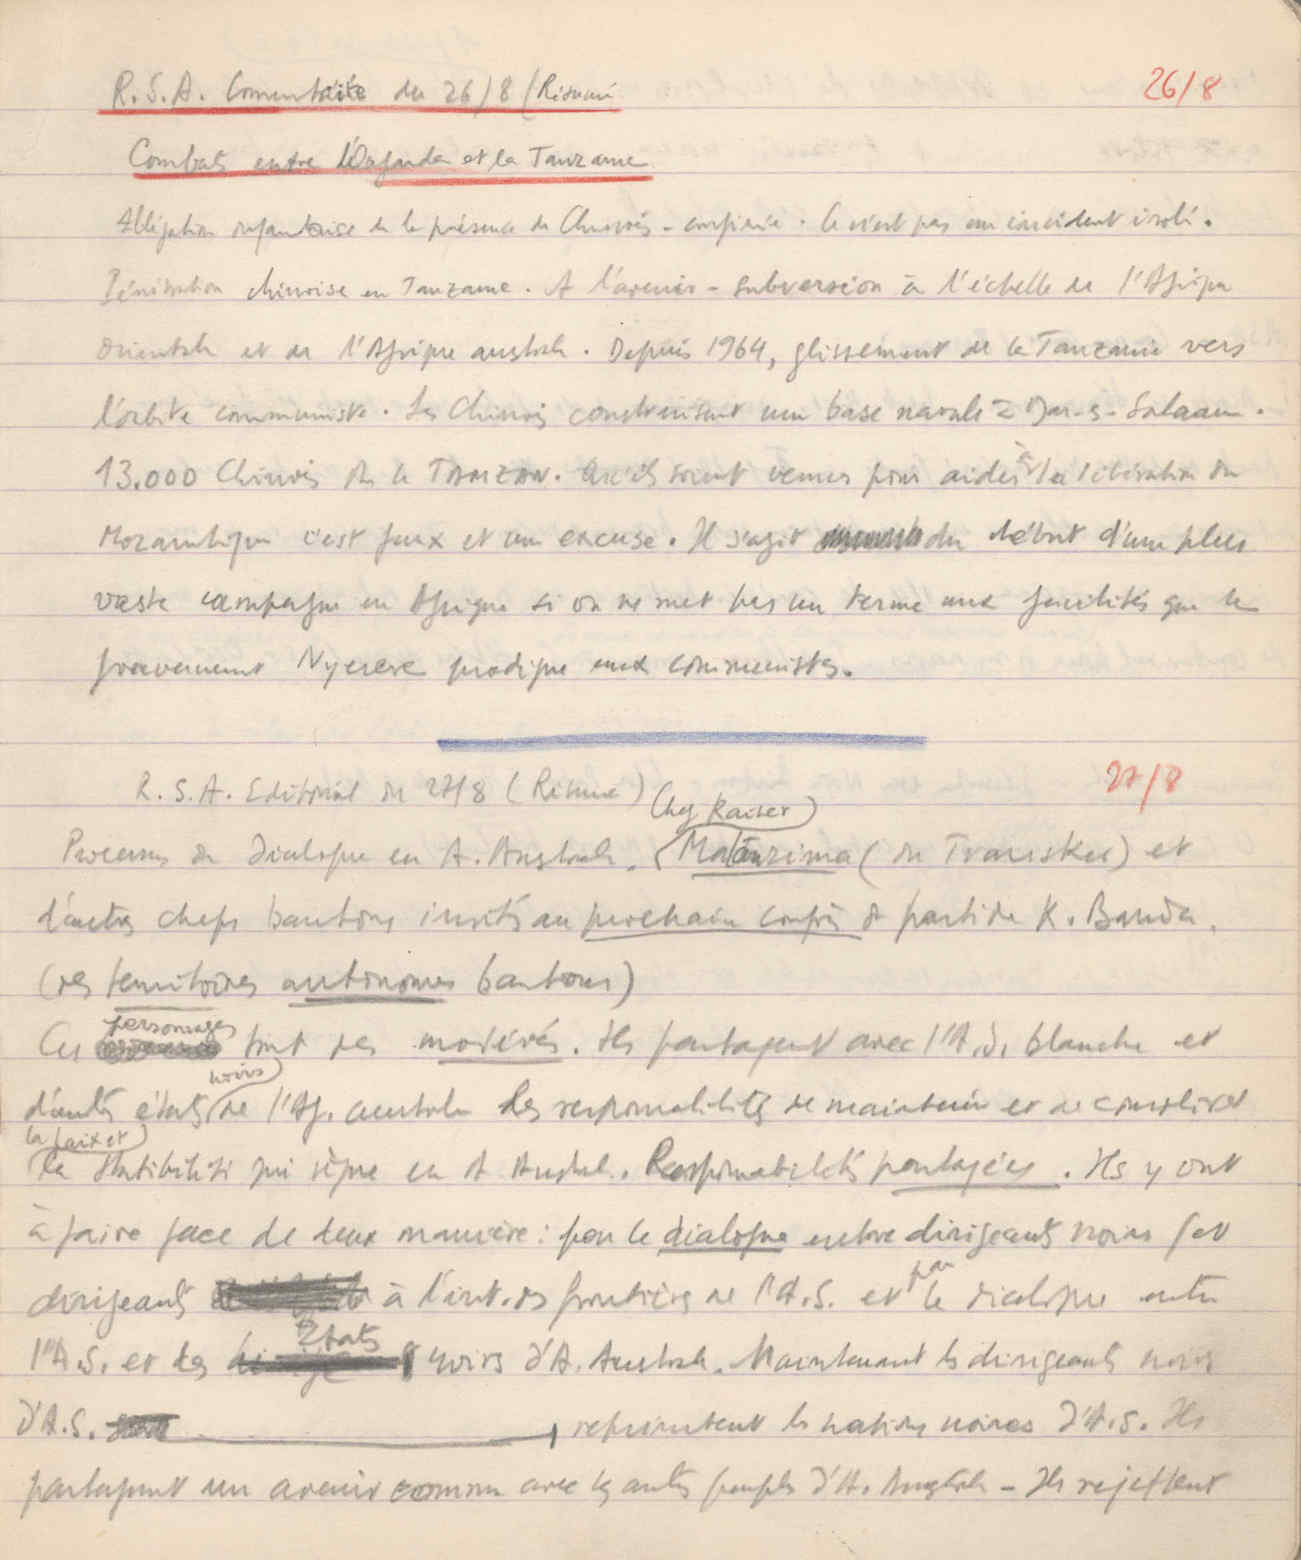 R.S.A. Commentaire du 26/8 (Résumé
26/8
Combats entre l'Ouganda et la Tanzanie
Allégation ougandaise de la présence de Chinois - confirmée. Ce n'est pas un incident isolé.
Pénétration chinoise en Tanzanie. A l'avenir - subversion à l'échelle de l'Afrique
Orientale et de l'Afrique australe. Depuis 1964, glissement de la Tanzanie vers
l'orbite communiste. Les Chinois construisent une base navale à Dar-es-Salaam.
13.000 Chinois ds la TANZAN. Qu'ils soient venus pour aider à la libération du
Mozambique c'est faux et une excuse. Il s'agit du début d'une plus
vaste campagne en Afrique si on ne met pas un terme aux facilités que le
gouvernement Nyerere prodigue aux communistes.
R.S.A. Editorial du 27/8 (Résumé)
27/8
(Chef Kaiser)
Processus de dialogue en A. Australe. Matanzima (du Transkei) et
d'autres chefs bantous invités au prochain congrès du parti de K. Banda.
(des territoires autonomes bantous)
Ces personnages sont des modérés. Ils partagent avec l'A.S. blanche et
d'autres états noirs de l'Af. australe les responsabilités de maintenir et de consolider
la paix et
la stabilité qui règne en A Austral. Responsabilités partagées. Ils y ont
à faire face de deux manières: par le dialogue entre dirigeants noirs et
dirigeants à l'int. des frontières de l'A.S. et par le dialogue entre
l'A.S. et les Etats noirs d'A. Australe. Maintenant les dirigeants noirs
d'A.S. , représentent les nations noires d'A.S. Ils
partagent un avenir commun avec les autres peuples d'A. Australe - Ils rejettent